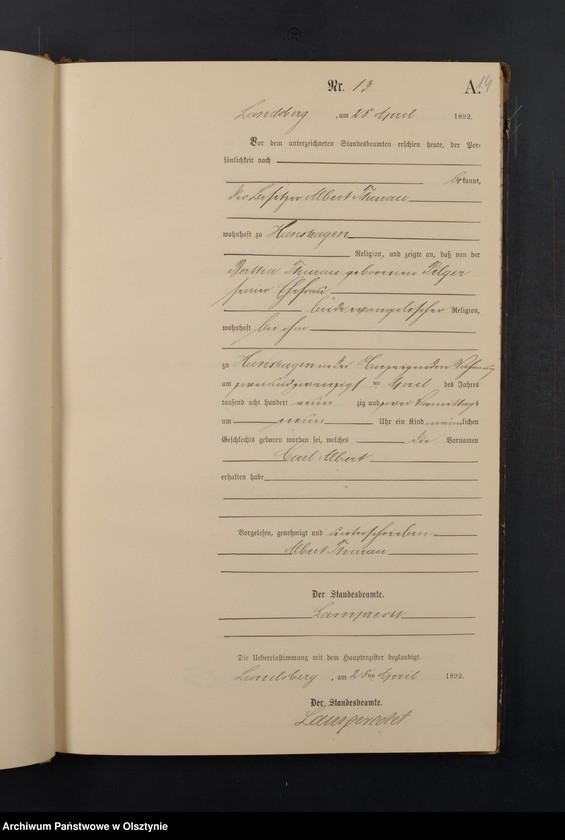 Nr. 13
A. 14
Landsberg, am 25 April 1892.
Vor dem unterzeichneten Standesbeamten erschien heute, der Per-
sönlichkeit nach
bekannt,
der Besitzer Albert Thurau
wohnhaft zu Hanshagen
Religion, und zeigte an, daß von der
Bertha Thurau geborenen Pelger
seiner Ehefrau
beide evangelischer Religion,
wohnhaft bei ihm
zu Hanshagen in der Wohnung
am zweiundzwanzigsten April des Jahres
tausend acht hundert neun zig und zwei Vormittags
um neun Uhr ein Kind männlichen
Geschlechts geboren worden sei, welches die Vornamen
Carl Albert
erhalten habe
Vorgelesen, genehmigt und unterschrieben
Albert Thurau
Der Standesbeamte.
Die Uebereinstimmung mit dem Hauptregister beglaubigt.
Landsberg, am 25ten April 1892.
Der Standesbeamte.
Archiwum Państwowe w Olsztynie